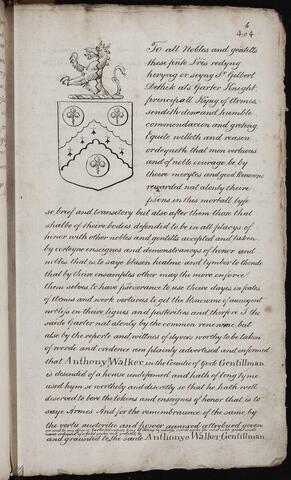 6
404
To all Nobles and gentills
these pnte Lres redyng
heryng or seyng Sr Gilbert
Dethik als Garter Knight
principall Kyng of Armes
sendith dew and humble
commendacion and greting
Equite willeth and reason
ordeyneth that men vertuous
and of noble courage be by
theire merytes and good Renowme
rewarded nat alonly theire
psons in this mortall lyfe
so breif and transitory but also after them thos that
shalbe of theire bodies descended to be in all placys of
honor with other nobles and gentills accepted and taken
by certeyne ensignes and demonstrancys of honor and
nobles that is to saye blason healme and tymber to thende
that by their ensamples other may the more enforce
them selves to have perseverance to use there dayes in feates
of Armes and work vertuous to get the Renowme of auncyent
nobless in there lignes and posterities and therfore I the
saide Garter nat alonly by the common renowme but
also by the reporte and wittnes of dyvers worthy to be taken
of words and credence am plainly advertised and informed
that Anthony Walker in the Countie of York Gentillman
is descended of a house undefamed and hath of long tyme
used hym so worthely and discretly so that he hath well
deserved to have the tokens and ensignes of honor that is to
saye Armes And for the remembraunce of the same by
the vertu auctoritie and power annexed attributed given
and graunted to the saide Anthonye Walker Gentillman